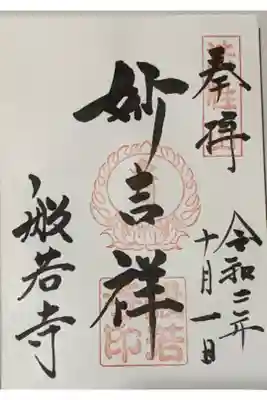 奉拝
令和二年
十月一日
妙吉祥
般若寺